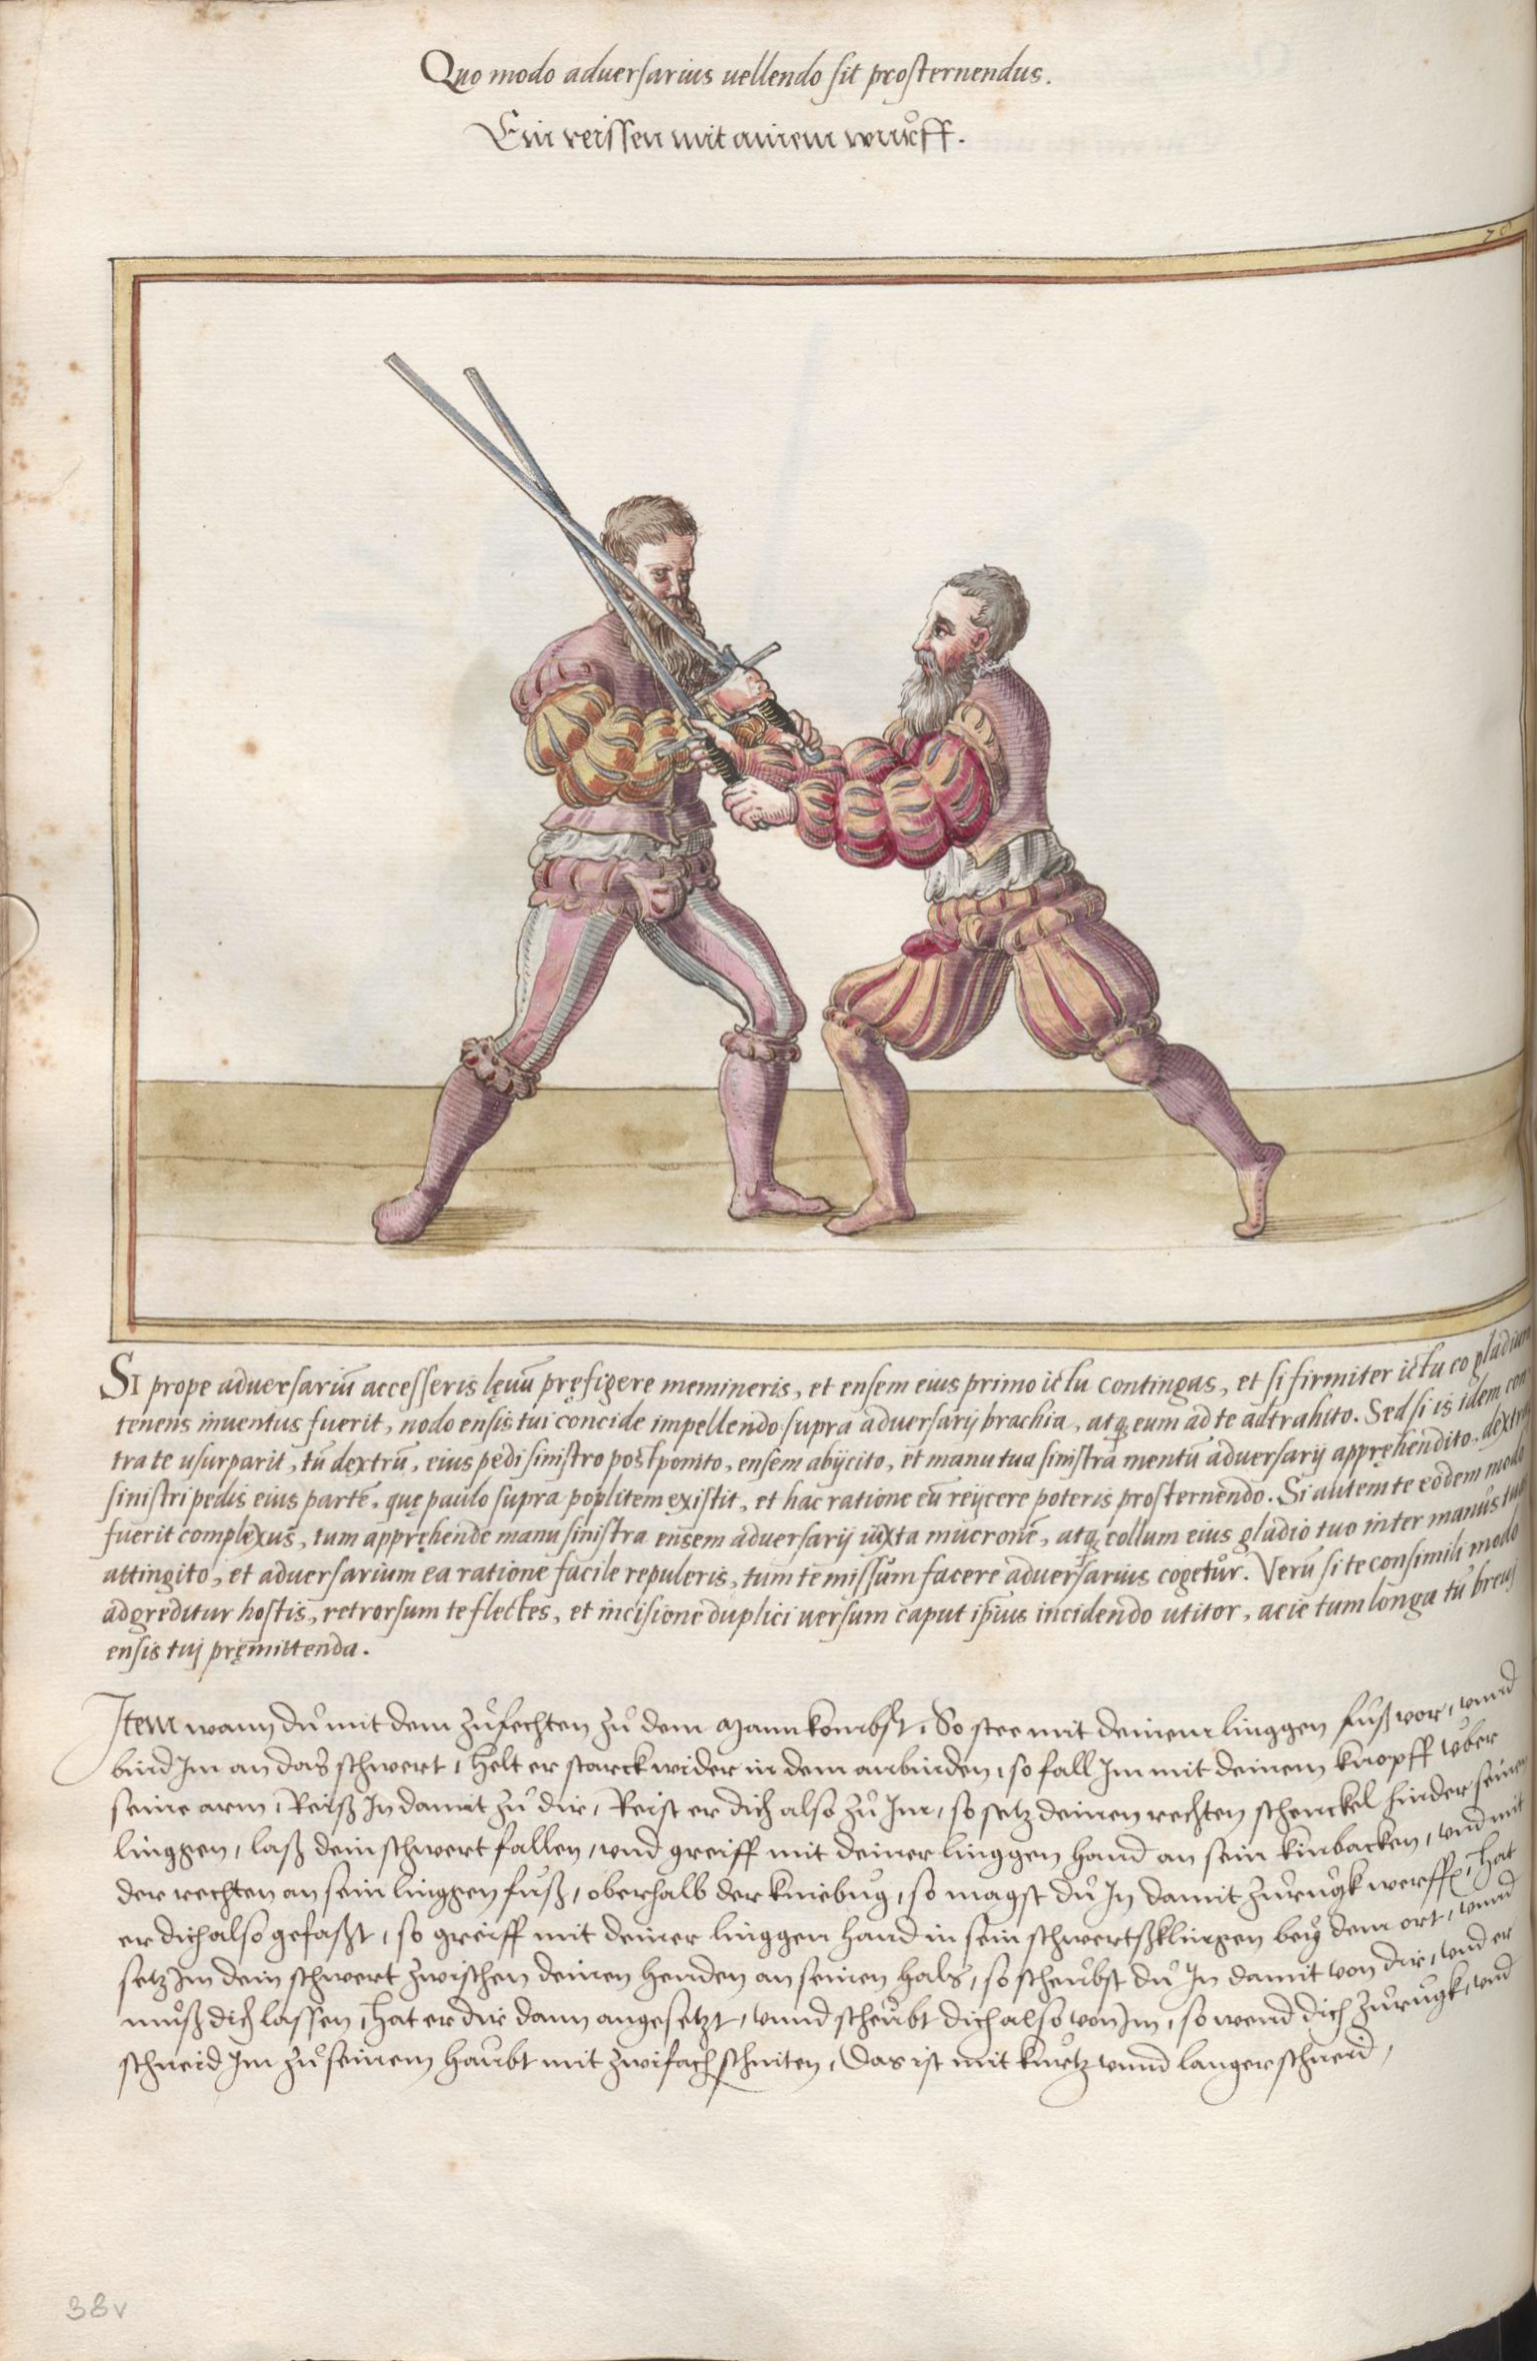 Quo modo aduersarius uellendo sit prosternendus.
Ein reissen mit ainem wurff.
Si prope aduersariū accesseris lęuū pręfigere memineris, et ensem eius primo ictu contingas, et si firmiter ictu eo gladium
tenens inuentus fuerit, nodo ensis tui concide impellendo supra aduersarij brachia, atq; eum ad te adtrahito. Sed si is idem con
tra te usurparit, tū dextrū, eius pedi sinistro postponito, ensem abijcito, et manu tua sinistra mentū aduersarij apprehendito, dextra
sinistri pedis eius partē, quę paulo supra poplitem existit, et hac ratione eū reijcere poteris prosternendo. Si autem te eodem modo
fuerit complexus, tum apprehende manu sinistra ensem aduersarij iuxta mucronē, atq; collum eius gladio tuo inter manus tuas
attingito, et aduersarium ea ratione facile repuleris, tum te missum facere aduersarius cogetur. Verū si te consimili modo
adgreditur hostis, retrorsum te flectes, et incisione duplici uersum caput ip̄ius incidendo utitor, acie tum longa tū breuj
ensis tuj pręmittenda.
Item wann dů mit dem zůfechten zů dem Mann kombst, So stee mit deinem linggen fůß vor, vnnd
bind Im an das schwert, helt er starck wider in dem anbinden, so fall Im mit deinem knopff vber
seine arm, Reiß In damit zů dir, Reist er dich also zů Im, so setz deinen rechten schenckel hinder seinen
linggen, laß dein schwert fallen, vnd greiff mit deiner linggen hand an sein kinbacken, vnd mit
der rechten an sein linggen fůß, oberhalb der kniebug, so magst dů In damit zůrugk werffē, Hat
er dich also gefaßt, so greiff mit deiner linggen hand in sein schwertßklingen bey dem ort, vnnd
setz Im dein schwert zwischen deinen henden an seinen hals, so scheubst dů In damit von dir, vnd er
můß dich lassen, Hat er dir dann angesetzt, vnnd scheubt dich also von Im, so wend dich zůrugk, vnd
schneid Im zů seinem haubt mit zwifach schniten, Das ist mit kurtz vnnd langer schneid,
38v